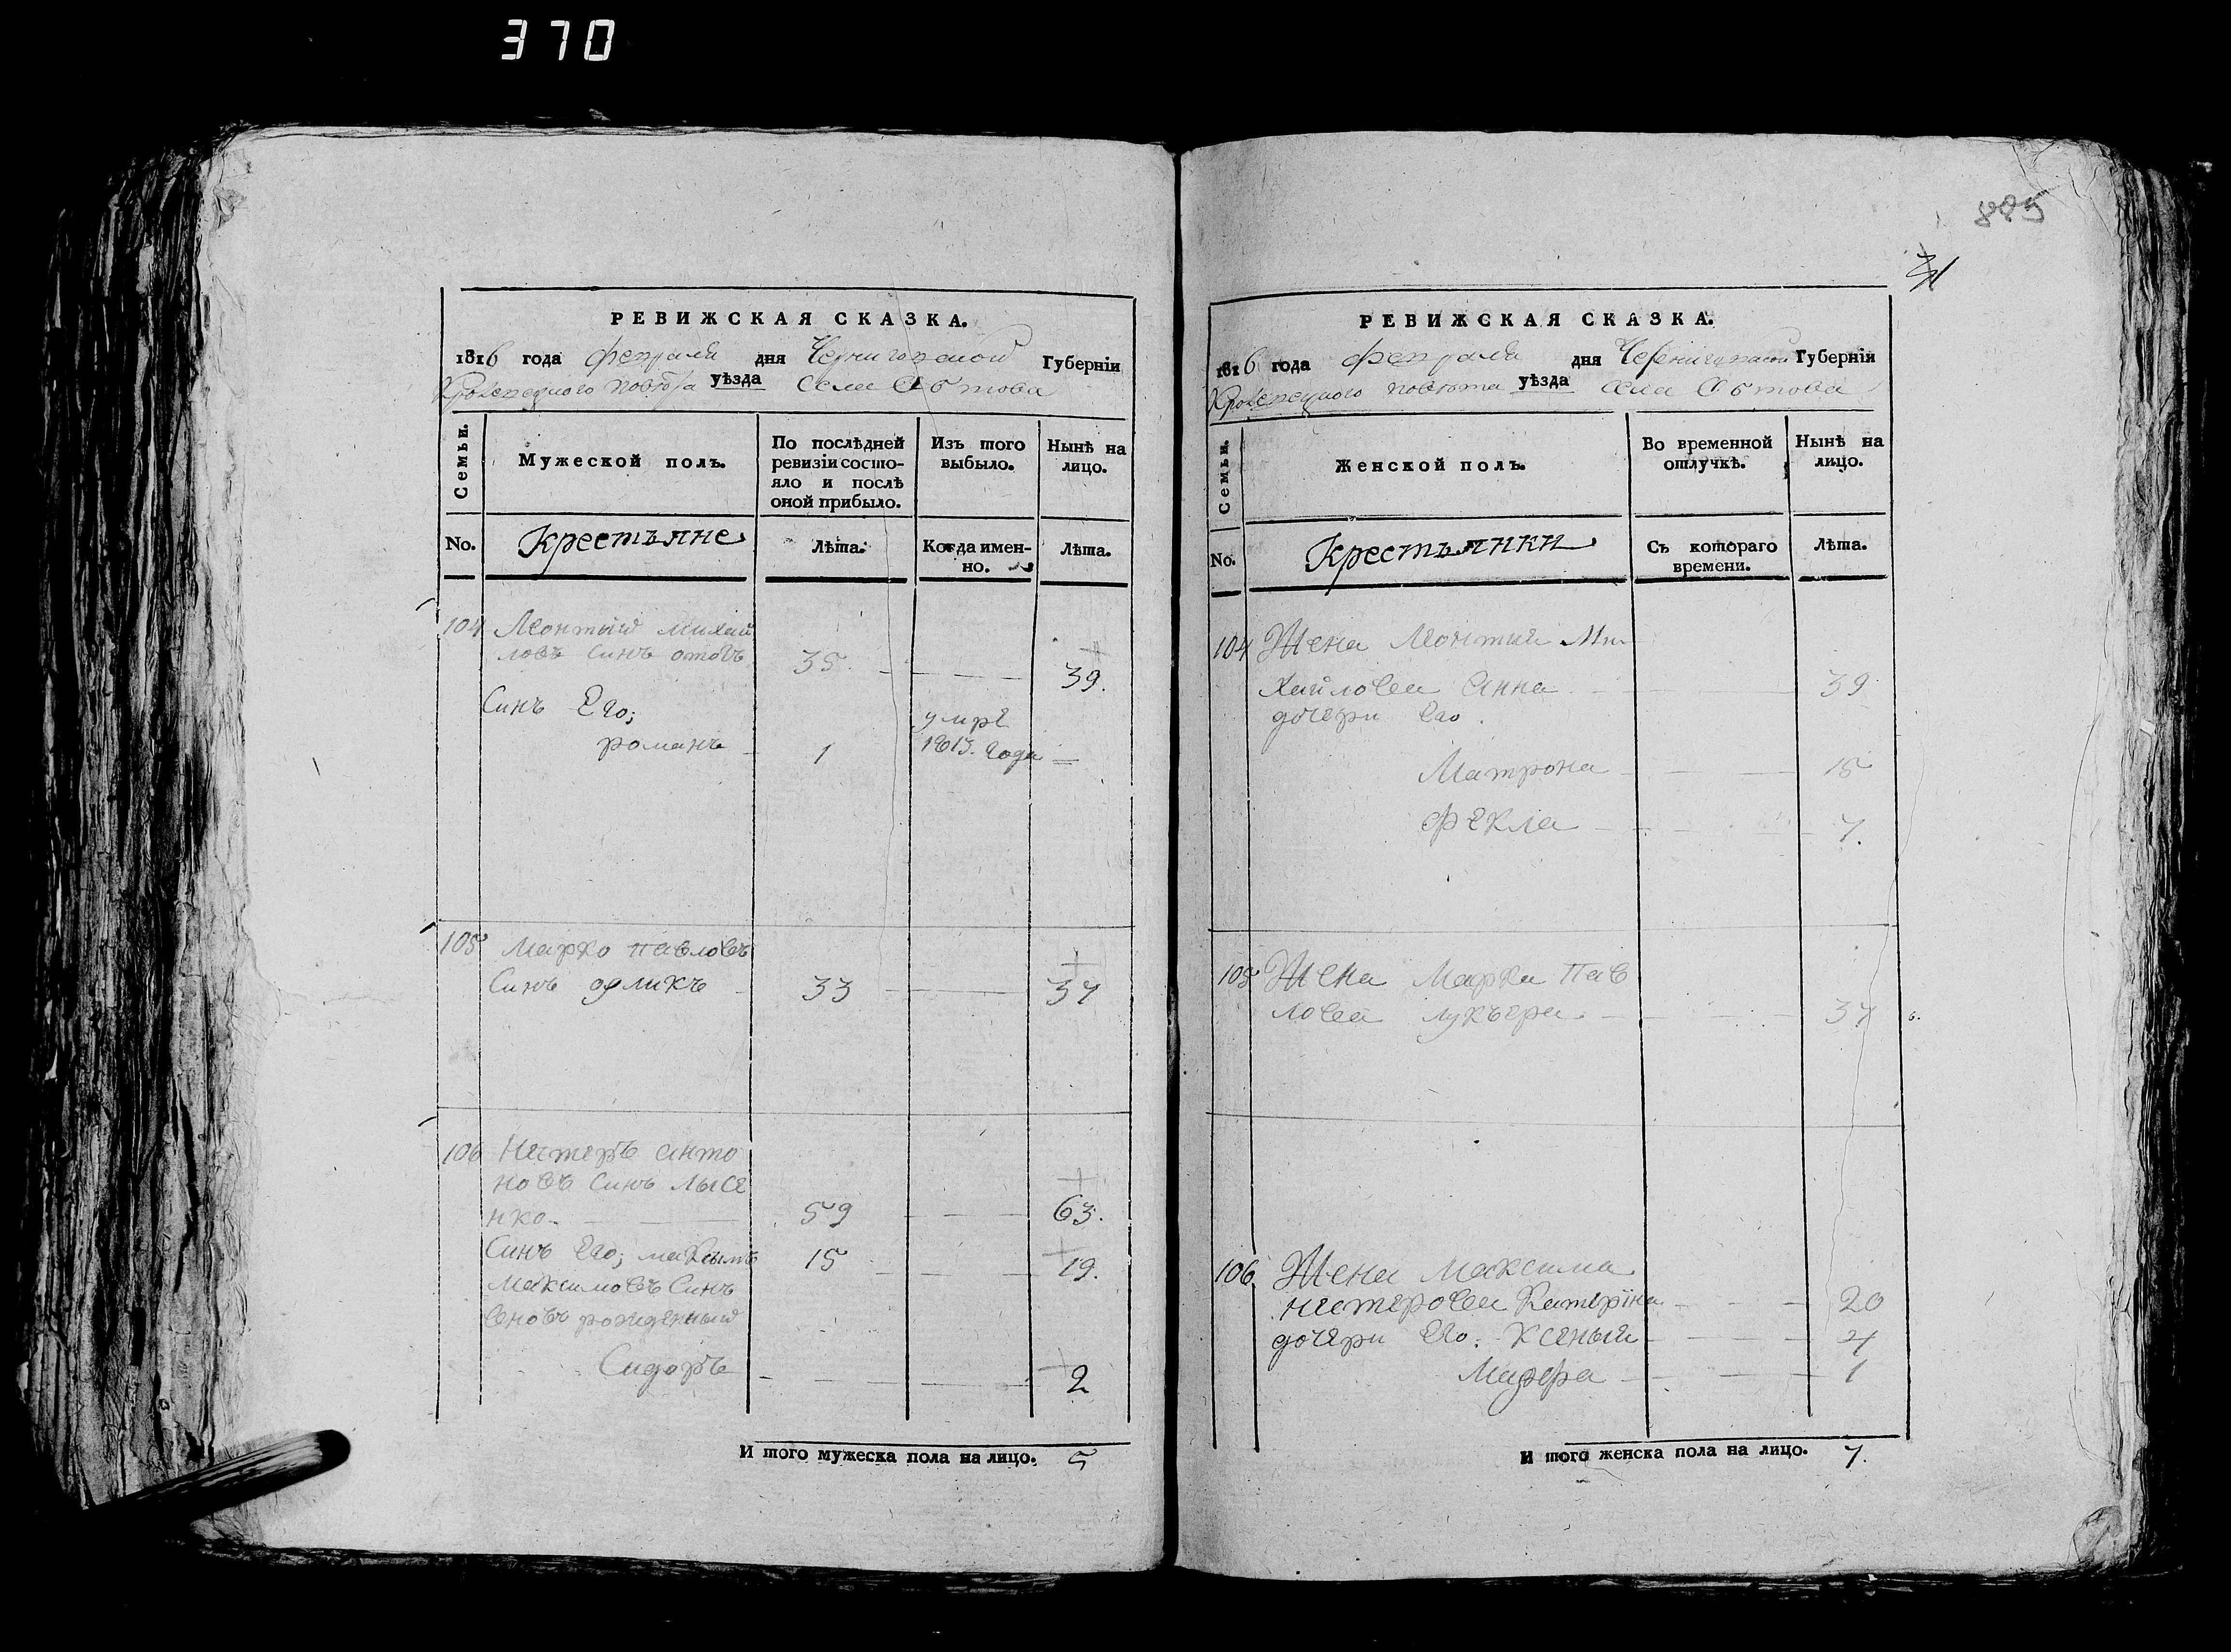 370
885
31
РЕВИЖСКАЯ СКАЗКА.
1816 года февраля дня Черниговской Губерніи
Кролевецкого повѣта уѣзда села Обтова
Семьи.
Мужеской полъ.
По послѣдней ревизіи состояло и послѣ оной прибыло.
Изъ того выбыло.
Нынѣ на лицо.
No.
Крестьяне
Лѣта.
Когда именно.
Лѣта.
104 Леонтый михай
ловъ синъ 35 39.
Синъ Его;
романъ 1 умре 1813. Года
105 Марко павловъ
Синъ 33 37
106 Нестеръ анто
новъ Синъ лысе
нко 59 63.
Синъ Его; максымъ 15 19.
Максимовъ Синъ
вновъ рожденный
Сидоръ 2
И того мужеска пола на лицо. 5
РЕВИЖСКАЯ СКАЗКА.
1816 года февраля дня Черниговской Губерніи
Кролевецкого повѣта уѣзда села Обтова
Семьи.
Женской полъ.
Во временной отлучкѣ.
Нынѣ на лицо.
No.
Крестьянки
Съ котораго времени.
Лѣта.
104 Жена Леонтия Ми
хайлова Анна 39
дочери Его.
Матрона 15
Фекла 7.
105 Жена Марка Пав
лова лукъера 37
106 Жена Максима
нестерова Катерїна 20
дочери Его: Ксенья 4
Марфа 1
И того женска пола на лицо. 7.